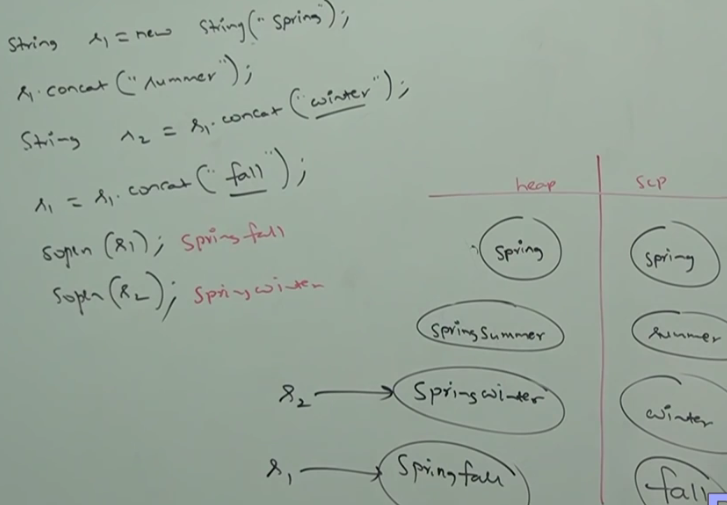 String s1 = new String("Spring");
s1.concat("summer");
String s2 = s1.concat("winter");
s1 = s1.concat("fall");
sopln(s1); Springfall
sopln(s2); Springwinter
heap scp
Spring spring
SpringSummer summer
s2 Springwinter winter
s1 Springfall fall